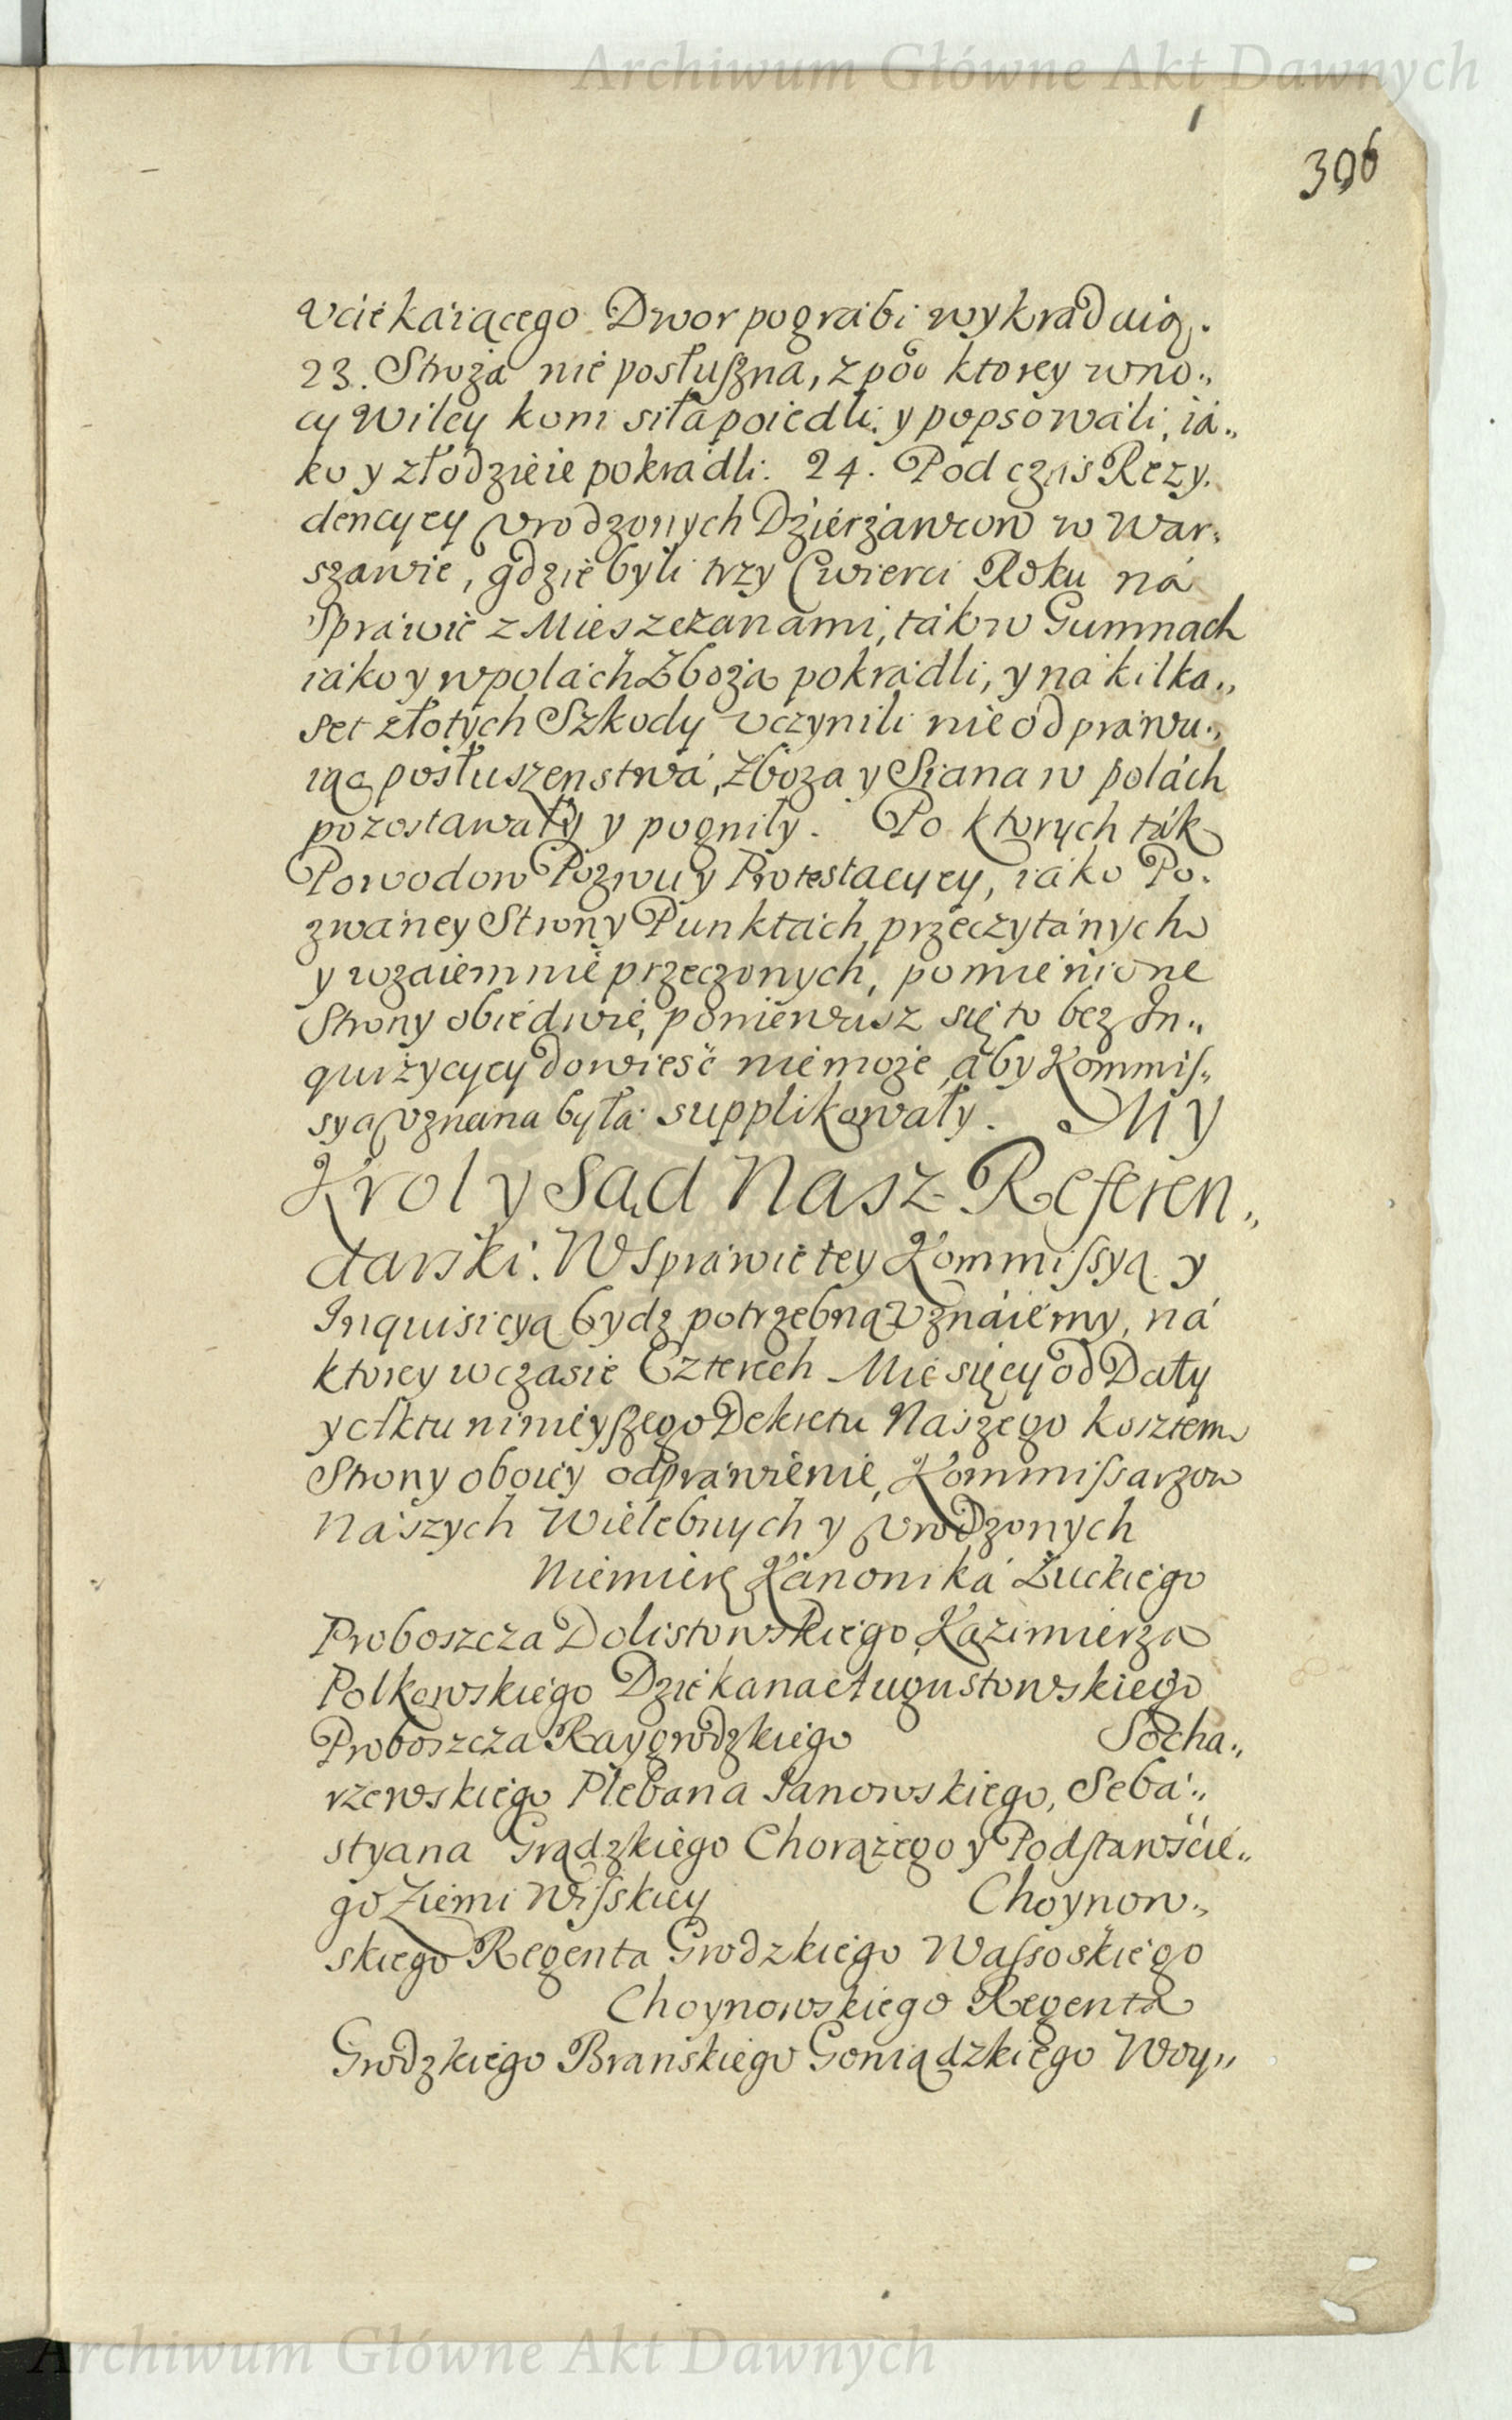 Archiwum Główne Akt Dawnych
306
vciekáiącego Dwor pográbi wykraduią.
23. Stroża nie posłuszna, z pod ktorey wno„
cy Wilcy koni siła poiedli y popsowáli, iá„
ko y złodzieie pokrádli. 24. Podczas Rezy„
dencyey vrodzonych Dzierżawcow w War„
szawie, gdzie byli trzy Cwierci Roku ná
Spráwie z Mieszczanami, ták w Gumnach
iáko y w polách Zboża pokrádli, y ná kilka„
set złotych Szkody vczynili nie odpráwu„
iąc posłuszenstwá, Zboza y Siana w polách
pozostawały y pogniły. Po ktorych ták
Powodow Pozwu y Protestacyey, iáko Po„
zwáney Strony Punktách przeczytánych
y wzaiemnie przeczonych, pomienione
Strony obiedwie, poniewasz się to bez In„
quizycyey dowieść nie może, áby Kommis„
sya vznana była supplikowały. My
Krol y Sąd Nasz Referen„
darski. W Spráwie tey Kommissyą y
Inquisicyą bydz potrzebną vznáiemy, ná
ktorey w czasie Czterech Miesięcy od Daty
y Aktu ninieyszego Dekretu Naszego kosztem
Strony oboiey odpráwienie, Kommissarzow
Nászych Wielebnych y vrodzonych
Niemierę Kánoniká Łuckiego
Proboszcza Dolistowskiego, Kazimierza
Polkowskiego Dziekana Augustowskiego
Proboszcza Raygrodzkiego Socha„
rzewskiego Plebana Janowskiego, Sebá„
styana Grądzkiego Chorążego y Podstarościé„
go Ziemi Wisskiey Choynow„
skiego Regenta Grodzkiego Wąssoskiego
Choynowskiego Regenta
Grodzkiego Branskiego Goniądzkiego Woy„
Archiwum Główne Akt Dawnych